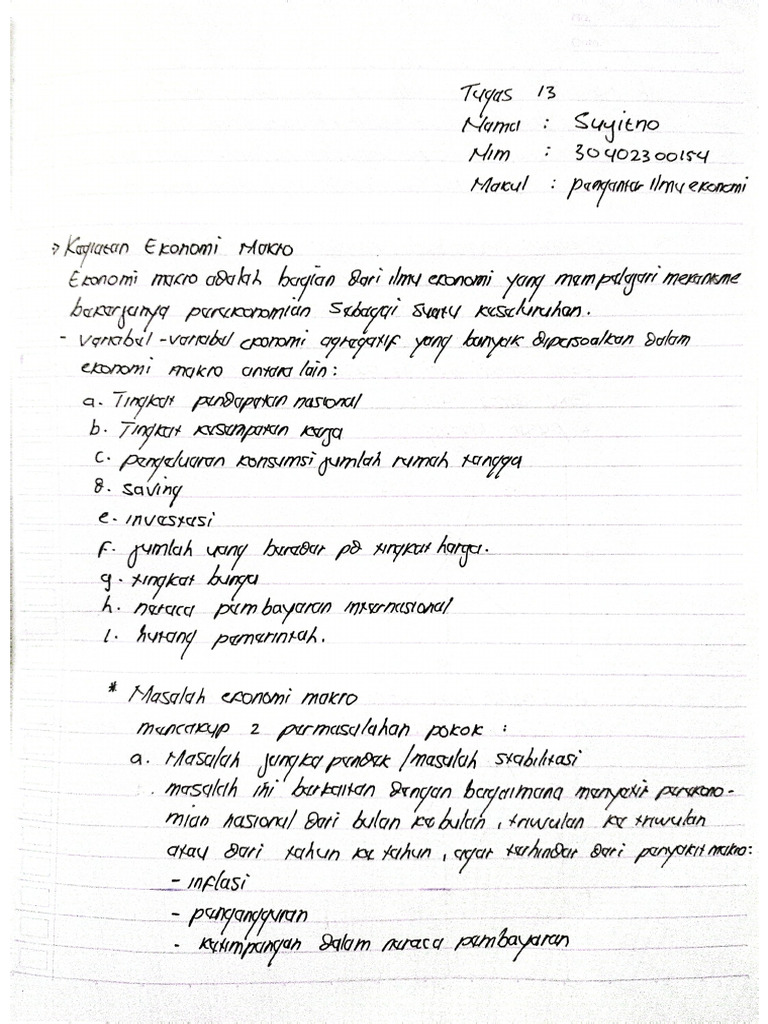 Tugas 13
Nama : Suyitno
Nim : 30402300154
Makul : pengantar ilmu ekonomi
→ Kegiatan Ekonomi Makro
Ekonomi makro adalah bagian dari ilmu ekonomi yang mempelajari mekanisme
bekerjanya perekonomian sebagai suatu keseluruhan.
- Variabel-variabel ekonomi agregatif yang banyak dipersoalkan dalam
ekonomi makro antara lain :
a. Tingkat pendapatan nasional
b. Tingkat kesempatan kerja
c. pengeluaran konsumsi jumlah rumah tangga
d. saving
e. investasi
f. jumlah uang beredar pd tingkat harga.
g. tingkat bunga
h. neraca pembayaran internasional
i. hutang pemerintah.
* Masalah ekonomi makro
mencakup 2 permasalahan pokok :
a. Masalah jangka pendek / masalah stabilitasi
masalah ini berkaitan dengan bagaimana menyetir perekono-
mian nasional dari bulan ke bulan, triwulan ke triwulan
atau dari tahun ke tahun, agar terhindar dari penyakit makro :
- inflasi
- pengangguran
- ketimpangan dalam neraca pembayaran